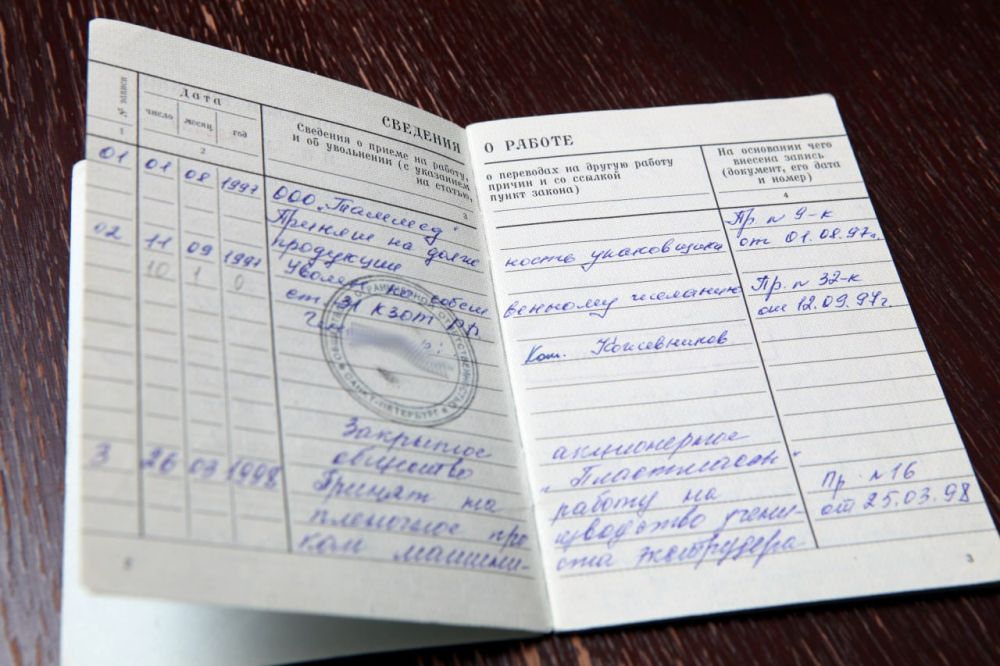 СВЕДЕНИЯ О РАБОТЕ
№ записи
Дата
число месяц год
Сведения о приеме на работу,
и об увольнении (с указанием
на статью,
о переводах на другую работу
причин и со ссылкой
пункт закона)
На основании чего
внесена запись
(документ, его дата
и номер)
1 2 3 4
01 01 08 1997 ООО "
Принят на долж ность упаковщика Пр. № 9-к
продукции от 01.08.97г.
02 11 09 1997 Уволен по собст венному желанию Пр. № 32-к
10 1 0 ст. 31 КЗОТ РФ. от 12.09.97г.
Ген Кожевников
САНКТ-ПЕТЕРБУРГ
Закрытое акционерное
общество "Пластмассы"
3 26 03 1998 Принят на работу на Пр. № 16
пленочное про изводство учени- от 25.03.98
ком машини- ста экструдера
3